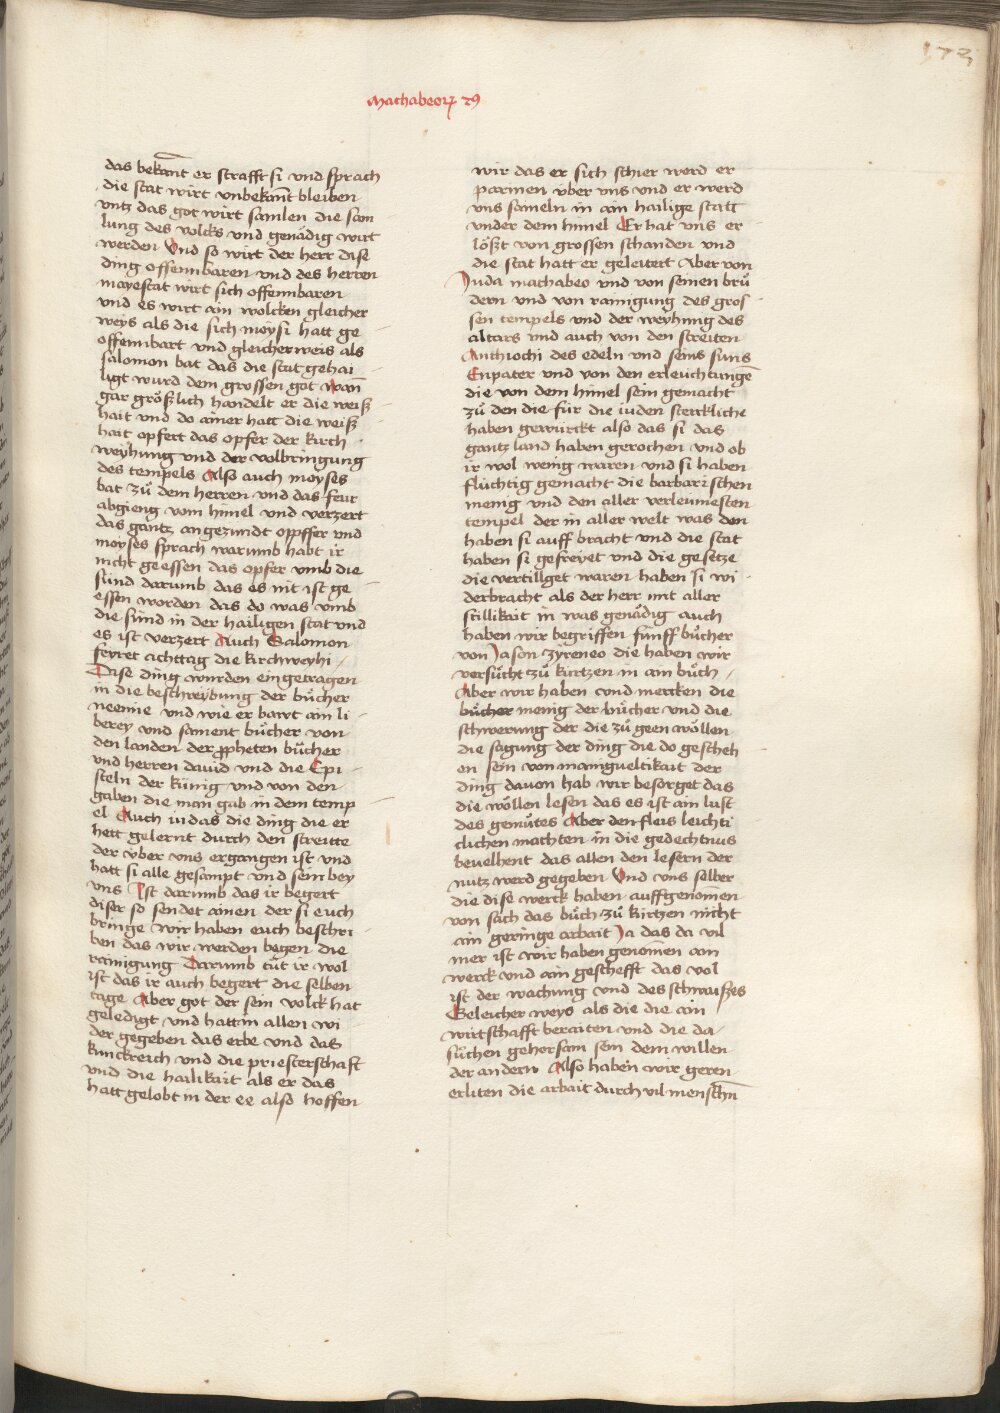 173
Machabeorꝝ 2⁹
das bekant er strafft si vnd sprach
die stat wirt vnbekant bleiben
vntz das got wirt samlen die sam
lung des volcks vnd genådig wirt
werden Vnd so wirt der herr dise
ding offennbaren vnd des herren
mayestat wirt sich offennbaren
vnd es wirt ain wolcken gleicher
weys als die sich moysi hatt ge
offennbart vnd gleicherweis als
salomon bat das die stat gehai
ligt wurd dem grossen got wan̄
gar größlich handelt er die weiß
hait vnd do ainer hatt die weiß
hait opfert das opfer der kirch
weyhung vnd der volbringung
des tempels Also auch moyses
bat zů dem herren vnd das feur
abgieng vom himel vnd verzert
das gantz angezundt oppffer vnd
moyses sprach warumb habt ir
nicht geessen das opfer vmb die
sünd darumb das es nit ist ge
essen worden das do was vmb
die sünd in der hailigen stat vnd
es ist verzert Auch Salomon
feyret achttag die kirchweyhi
Dise ding wurden eingetragen
in die beschreybung der bůcher
neemie vnd wie er bawt ain li
berey vnd sament bůcher von
den landen der ꝓpheten bůcher
vnd herren dauid vnd die Epi
steln der künig vnd von den
gaben die man gab in dem temp
el Auch iudas die ding die er
hett gelernt durch den streitte
der vber vns ergangen ist vnd
hatt si alle gesampt vnd sein bey
vns Ist darumb das ir begert
diser so sendet ainen der si euch
bringe wir haben euch beschri
ben das wir werden begen die
rainigung Darumb tůt ir wol
ist das ir auch begert die selben
tage Aber got der sein volck hat
geledigt vnd hatt in allen wi
der gegeben das erbe vnd das
kunckreich vnd die priesterschaft
vnd die hailikait als er das
hatt gelobt in der ee also hoffen
wir das er sich schier werd er
parmen vber vns vnd er werd
vns sameln in ain hailige statt
vnder dem himel Er hat vns er
lößt von grossen schanden vnd
die stat hatt er geleitert Aber von
Juda machabeo vnd von seinen brů
dern vnd von rainigung des gros
sen tempels vnd der weyhung des
altars vnd auch von den streiten
Anthiochi des edeln vnd seins suns
Eupater vnd von den erleuchtungē
die von dem himel sein gemacht
zů den die für die iuden sterckliche
haben gewürckt also das si das
gantz land haben gerochen vnd ob
ir wol wenig waren vnd si haben
flüchtig gemacht die barbarischen
menig vnd den aller verleumesten
tempel der in aller welt was den
haben si auff bracht vnd die stat
haben si gefreyet vnd die gesetze
die vertillget waren haben si wi
derbracht als der herr mit aller
stillikait in was genådig auch
haben wir begriffen fünff bůcher
von Jason zyreneo die haben wir
versůcht zů kürtzen in ain bůch
Aber wir haben vnd mercken die
bůcher menig der bůcher vnd die
schwerung der die zů geen wöllen
die sagung der ding die do gescheh
en sein von manigueltikait der
ding dauon hab wir besorget das
die wöllen lesen das es ist ain lust
des gemůtes Aber den fleis leichti
clichen machten in die gedechtnus
beuelhent das allen den lesern der
nutz werd gegeben Vnd vns selber
die dise werck haben auffgenomen
von sach das bůch zů kirtzen nicht
ain geringe arbait Ja das da vil
mer ist wir haben genomen ain
werck vnd ain geschefft das vol
ist der wachung vnd des schwaißes
Geleicher weys als die die ain
wirtschafft beraiten vnd die da
sůchen gehorsam sein dem willen
der andern Also haben wir geren
erliten die arbait durch vil menschn̄